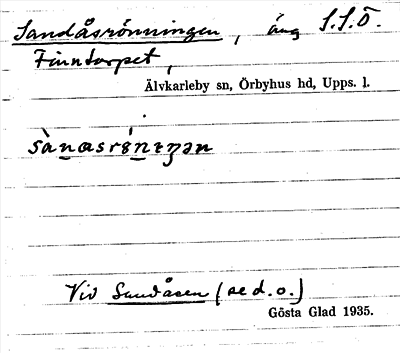 Sandåsrönningen, äng S.S.Ö.
Finntorpet,
Älvkarleby sn, Örbyhus hd, Upps. l.
sànasrö́nıŋən
Vid Sandåsen (se d. o.)
Gösta Glad 1935.